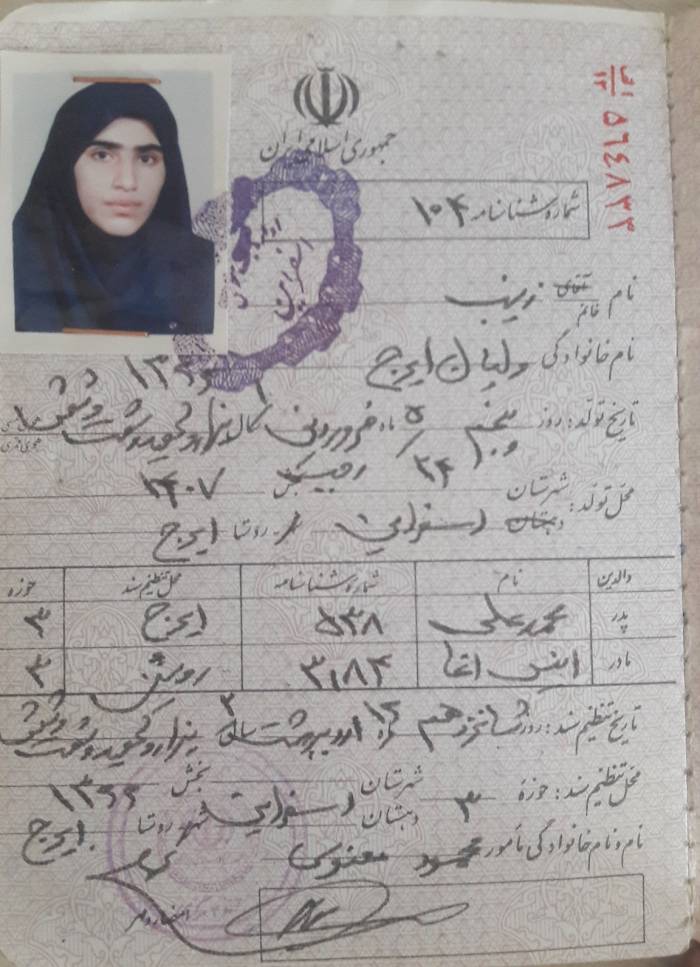 جمهوری اسلامی ایران
الف
۱۲ ۵۶۴۸۳۳
شماره شناسنامه ۱۰۴
نام آقای خانم زینب
نام خانوادگی ایرج
تاریخ تولد: روز پنجم ۵ ماه فروردین سال یکهزار و سیصد و شصت و شش
۱۳۶۶
۱۴۰۷
محل تولد: شهرستان دهستان اسفراین بخش روستا ایرج
والدین نام شماره شناسنامه محل تنظیم سند حوزه
پدر محمد علی ۵۳۸ ایرج ۳
مادر انیس آغا ۳۱۸۴ روئین ۳
تاریخ تنظیم سند: روز شانزدهم ماه اردیبهشت سال یکهزار و سیصد و شصت و شش
۱۳۶۶
محل تنظیم سند: حوزه ۳ شهرستان دهستان اسفراین بخش شهر روستا ایرج
نام و نام خانوادگی مامور محمود معنوی
امضاء و مهر